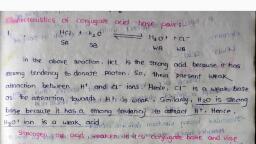 Characteristics of conjugate acid base pairs:
1. HCl + H₂O ⇌ H₃O⁺ + Cl⁻
SA SB WA WB
In the above reaction, HCl is the strong acid because it has
strong tendency to donate proton. So, there present weak
attraction between H⁺ and Cl⁻ ions. Hence, Cl⁻ is a weak base
as the attraction towards H⁺ is weak. Similarly, H₂O is strong
base because it has a strong tendency to attract H⁺. Hence,
H₃O⁺ ion is a weak acid.
Stronger the acid, weaker is its conjugate base and vice